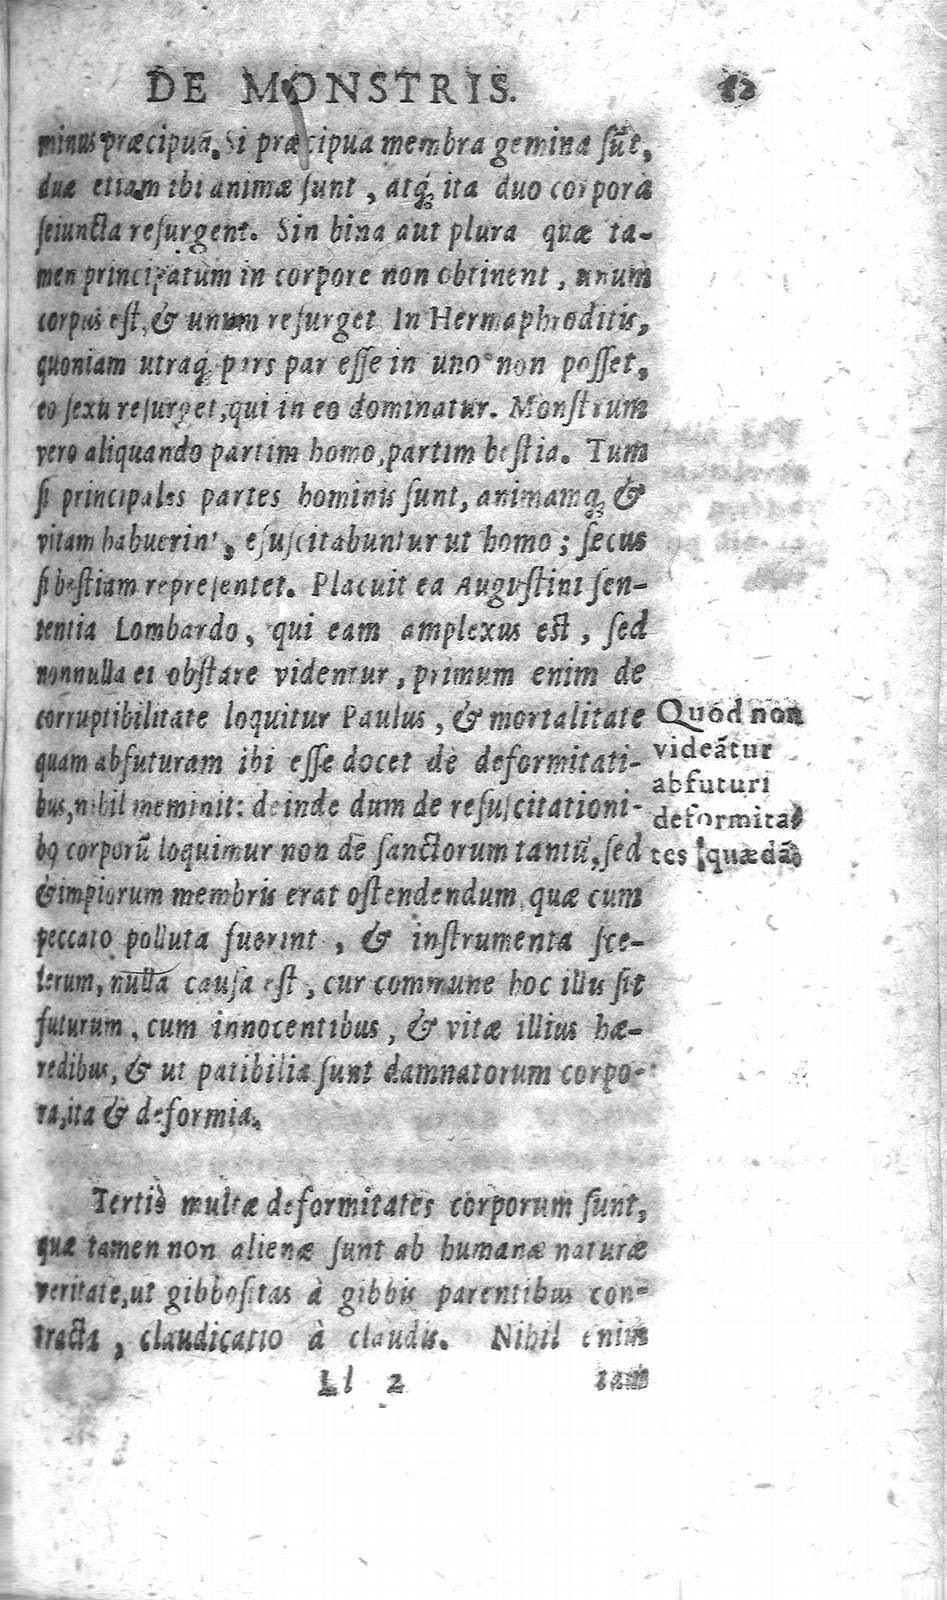 DE MONSTRIS. 82
minus præcipuā. Si præcipua membra gemina sūt,
duæ etiam ibi animæ sunt, atq; ita duo corpora
seiuncta resurgent. Sin bina aut plura quæ ta-
men principatum in corpore non obtinent, unum
corpus est, & unum resurget In Hermaphroditis,
quoniam utraq; pars par esse in uno non posset,
eo sexu resurget, qui in eo dominatur. Monstrum
vero aliquando partim homo, partim bestia. Tum
si principales partes hominis sunt, animamq; &
vitam habuerint, esuscitabuntur ut homo; secus
si bestiam representet. Placuit ea Augustini sen-
tentia Lombardo, qui eam amplexus est, sed
nonnulla ei obstare videntur, primum enim de
corruptibilitate loquitur Paulus, & mortalitate
quam abfuturam ibi esse docet de deformitati-
bus, nihil meminit: deinde dum de resuscitationi-
bꝰ corporū loquimur non de sanctorum tantū, sed
& impiorum membris erat ostendendum, quæ cum
peccato polluta fuerint, & instrumenta sce-
lerum, nulla causa est, cur commune hoc illis sit
futurum, cum innocentibus, & vitæ illius hæ-
redibus, & ut patibilia sunt damnatorum corpo-
ra, ita & deformia.
Quod non
videātur
abfuturi
deformita
tes quædā
Tertiò multæ deformitates corporum sunt,
quæ tamen non alienæ sunt ab humanæ naturæ
veritate, ut gibbositas à gibbis parentibus con-
tracta, claudicatio à claudis. Nihil enim
Ll 2 tam